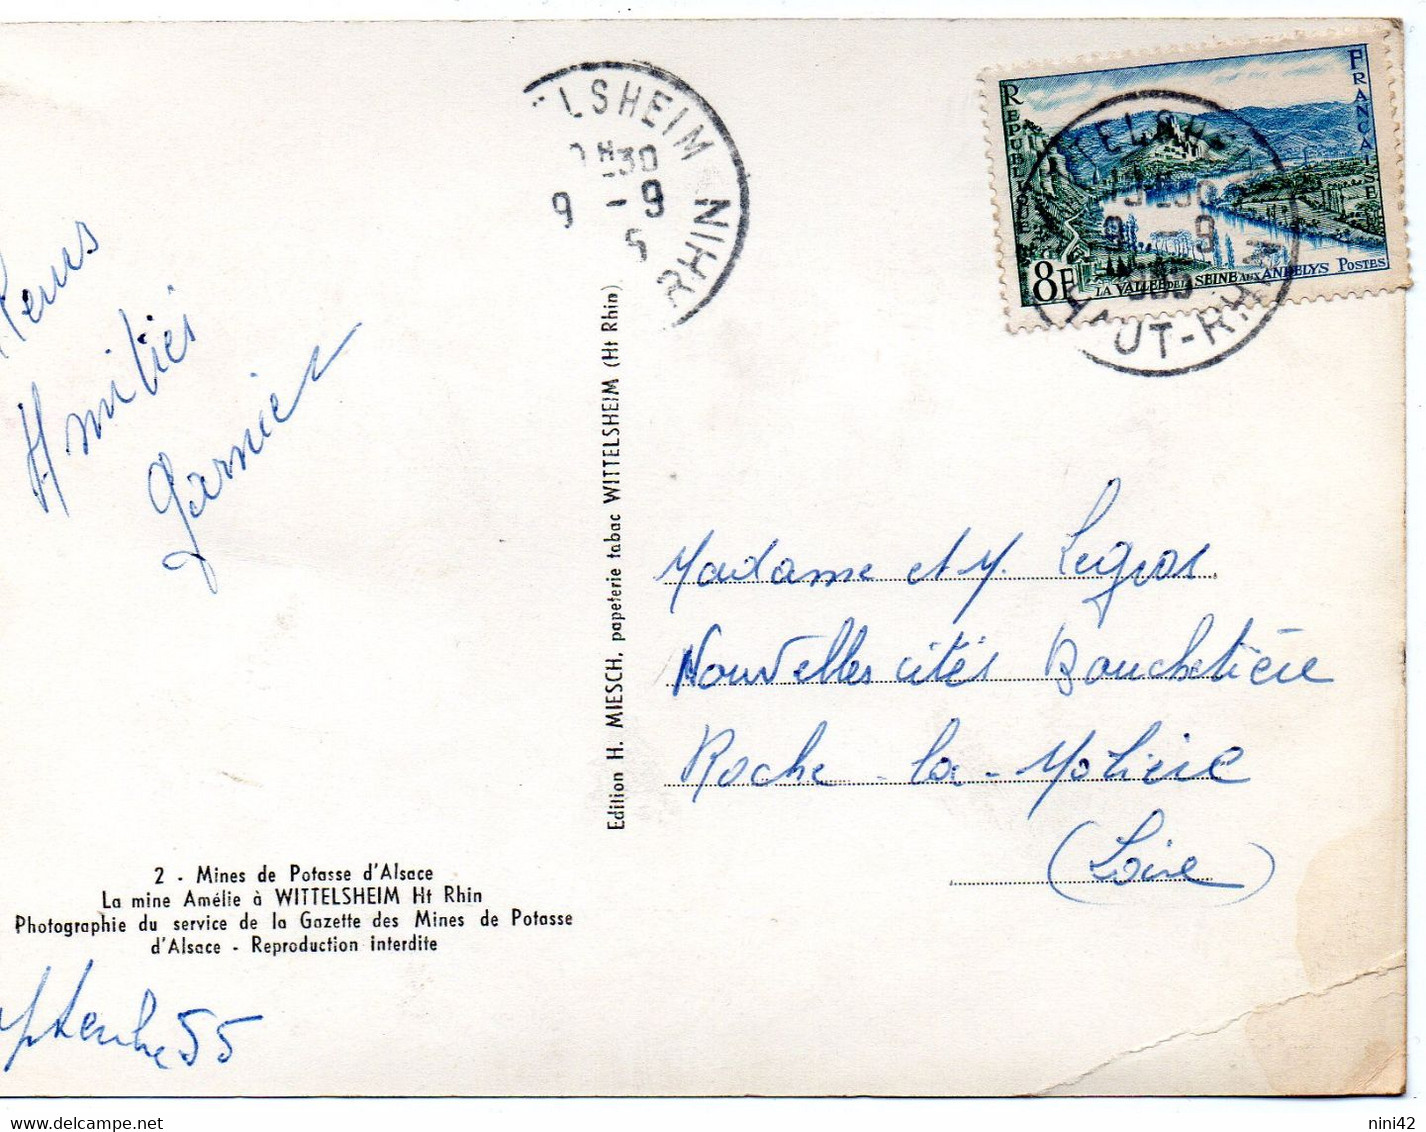 ELSHEIM
30
9 - 9
5
RHIN
RÉPUBLIQUE
FRANÇAISE
8F
LA VALLÉE DE LA SEINE AUX ANDELYS POSTES
TTELSHEI
30
9 - 9
HAUT-RHIN
Amitiés
Garnier
Edition H. MIESCH, papeterie tabac WITTELSHEIM (Ht Rhin)
Madame et M. Legros
Nouvelles cités Bouchetière
Roche-la-Molière
(Loire)
2 - Mines de Potasse d'Alsace
La mine Amélie à WITTELSHEIM Ht Rhin
Photographie du service de la Gazette des Mines de Potasse
d'Alsace - Reproduction interdite
ptembre 55
www.delcampe.net
nini42